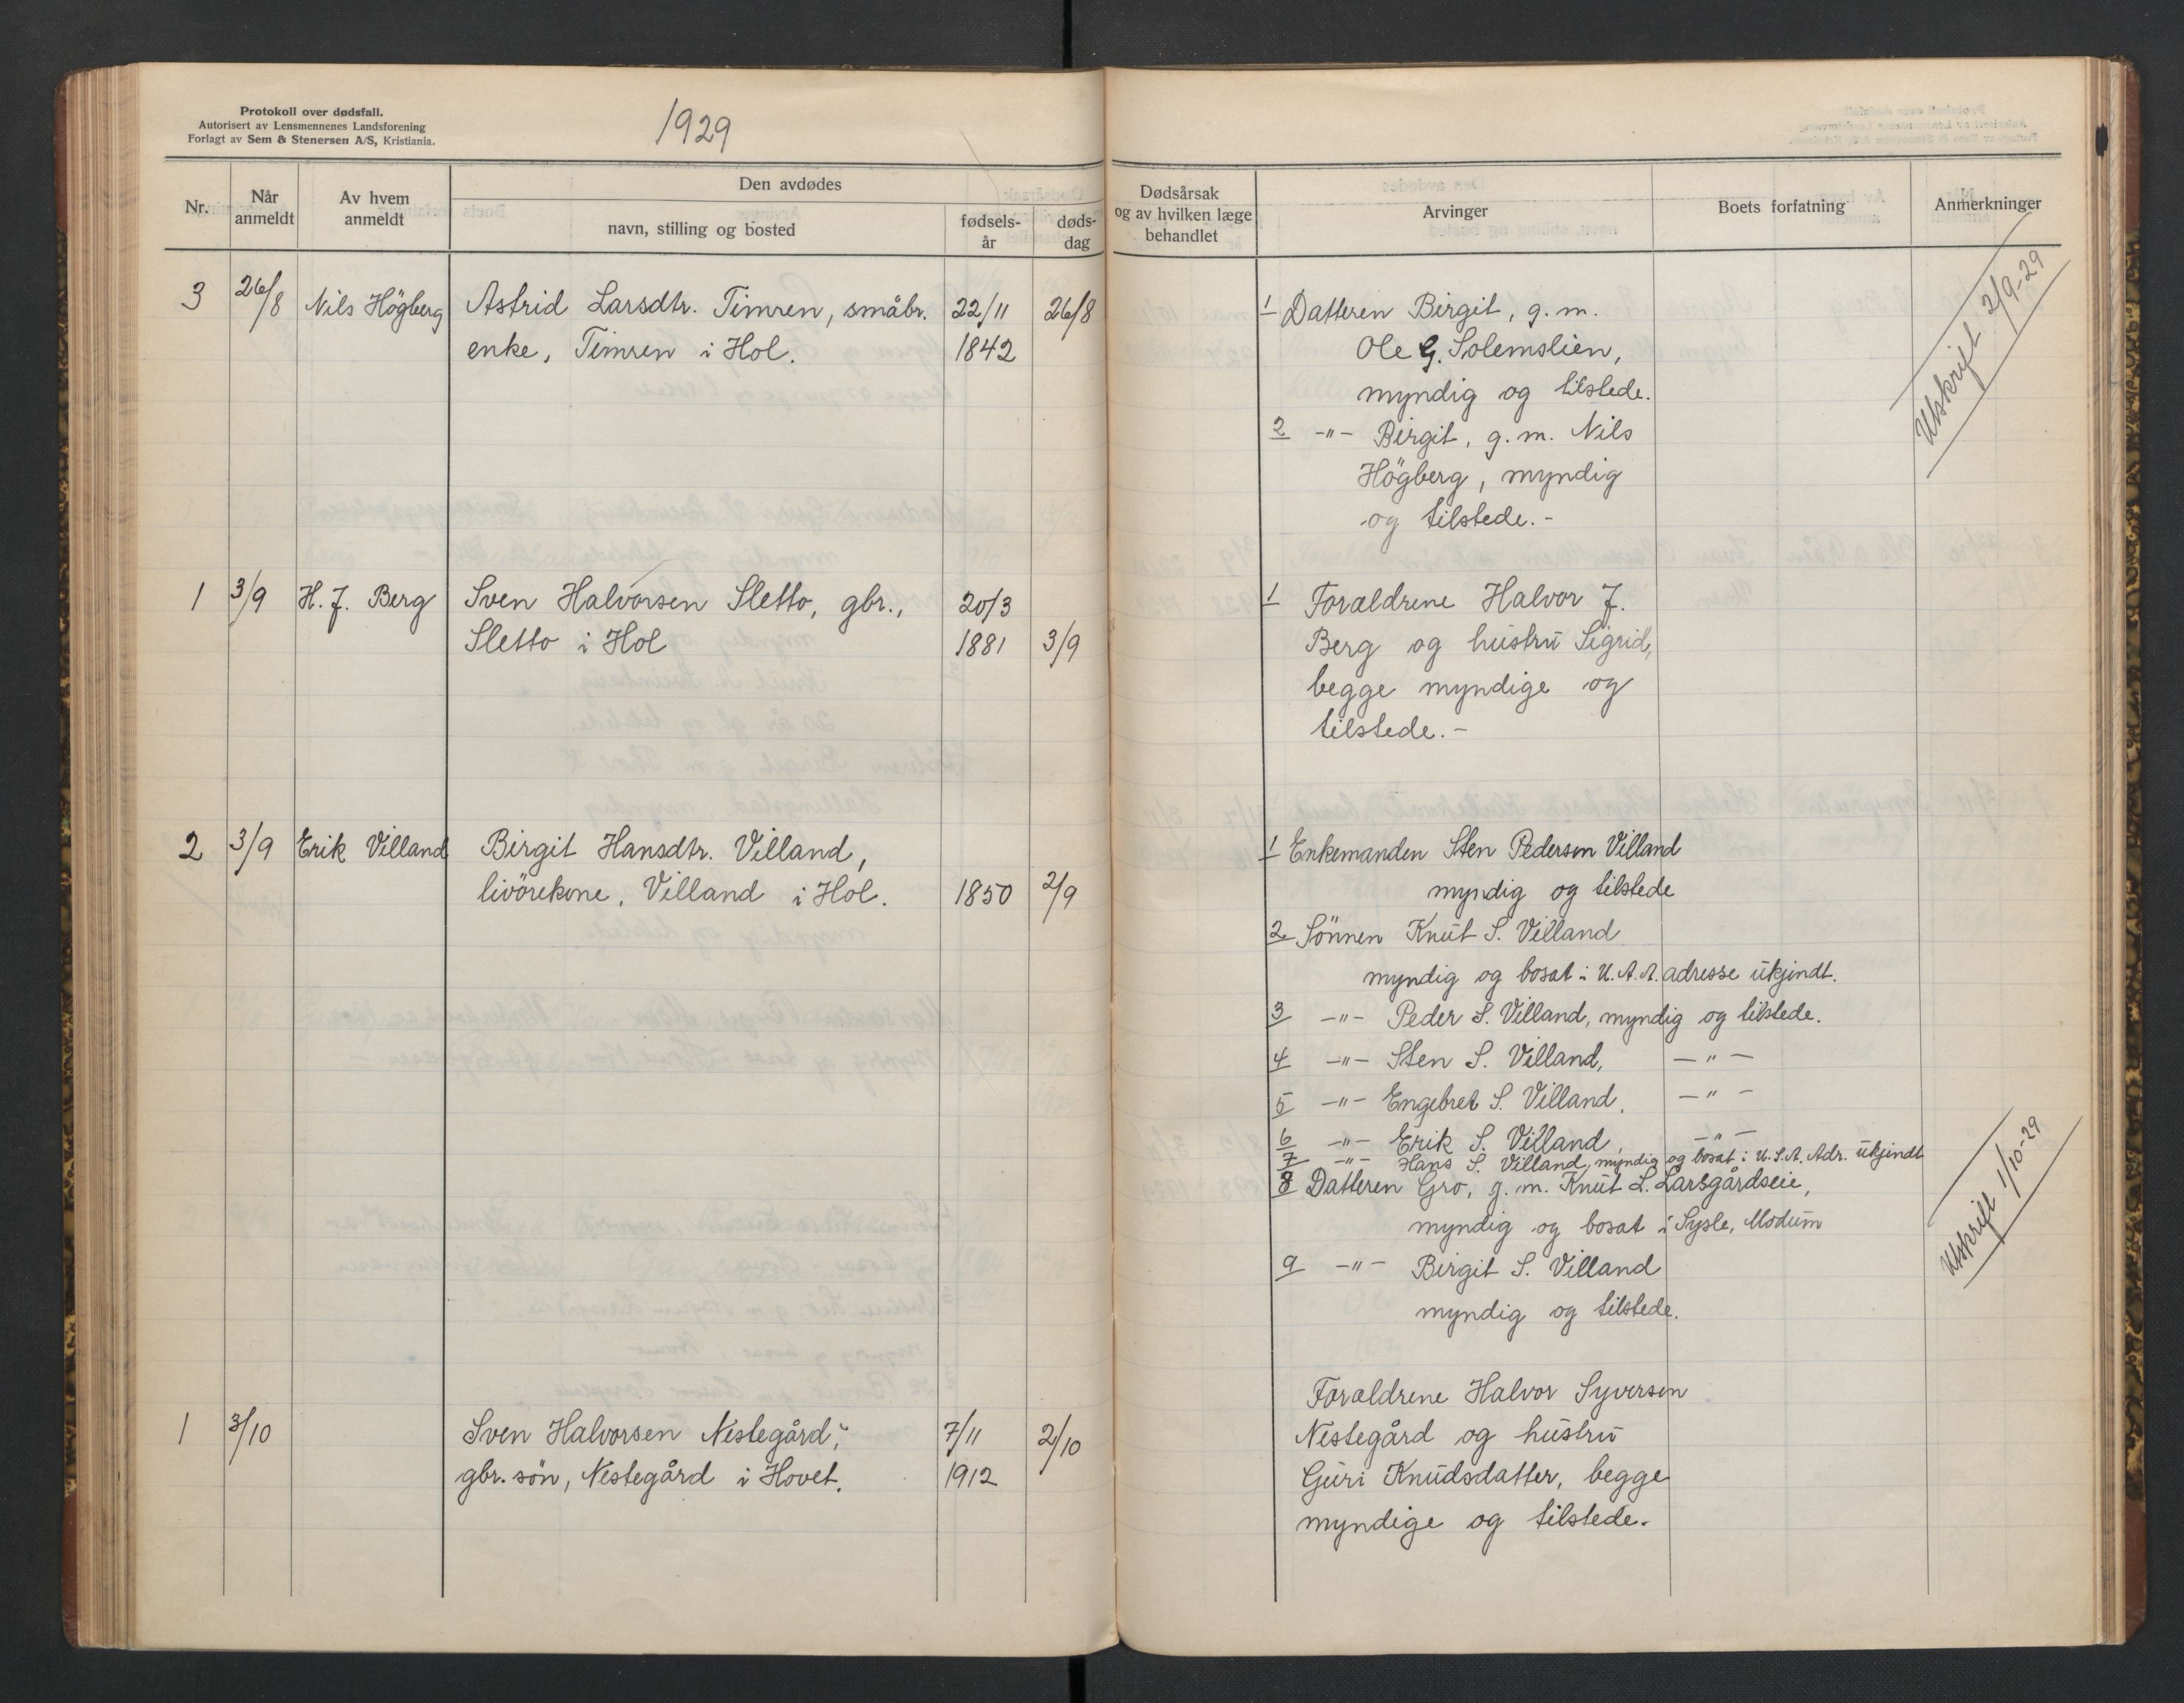 Protokoll over dødsfall.
Autorisert av Lensmennenes Landsforening
Forlagt av Sem & Stenersen A/S, Kristiania.
1929
Nr.
Når anmeldt
Av hvem anmeldt
Den avdødes
navn, stilling og bosted
fødselsår
dødsdag
Dødsårsak og av hvilken læge behandlet
Arvinger
Boets forfatning
Anmerkninger
3 26/8 Nils Högberg Astrid Larsdtr. Timren, småbr. 22/11 26/8
enke, Timren i Hol. 1842
1 Datteren Birgit, g. m.
Ole G. Solemslien,
myndig og tilstede.
2 -"- Birgit, g. m. Nils
Högberg, myndig
og tilstede.-
Utskrift 2/9-29
1 3/9 H. J. Berg Sven Halvorsen Sletto, gbr., 20/3
Sletto i Hol 1881 3/9
1 Forældrene Halvor J.
Berg og hustru Sigrid,
begge myndige og
tilstede.-
2 3/9 Erik Villand Birgit Hansdtr. Villand,
livörekone, Villand i Hol. 1850 2/9
1 Enkemanden Sten Pedersen Villand
myndig og tilstede
2 Sönnen Knut S. Villand
myndig og bosat i U.S.A. adresse ukjendt.
3 -"- Peder S. Villand, myndig og tilstede.
4 -"- Sten S. Villand, -"-
5 -"- Engebret S. Villand, -"-
6 -"- Erik S. Villand, -"-
7 -"- Hans S. Villand, myndig og bosat i U.S.A. Adr. ukjendt
8 Datteren Gro, g. m. Knut L. Larsgårdseie,
myndig og bosat i Sysle, Modum
9 -"- Birgit S. Villand
myndig og tilstede.
Utskrift 1/10-29
1 3/10 Sven Halvorsen Nestegård, 7/11 2/10
gbr. sön, Nestegård i Hovet. 1912
Forældrene Halvor Syversen
Nestegård og hustru
Guri Knudsdatter, begge
myndige og tilstede.